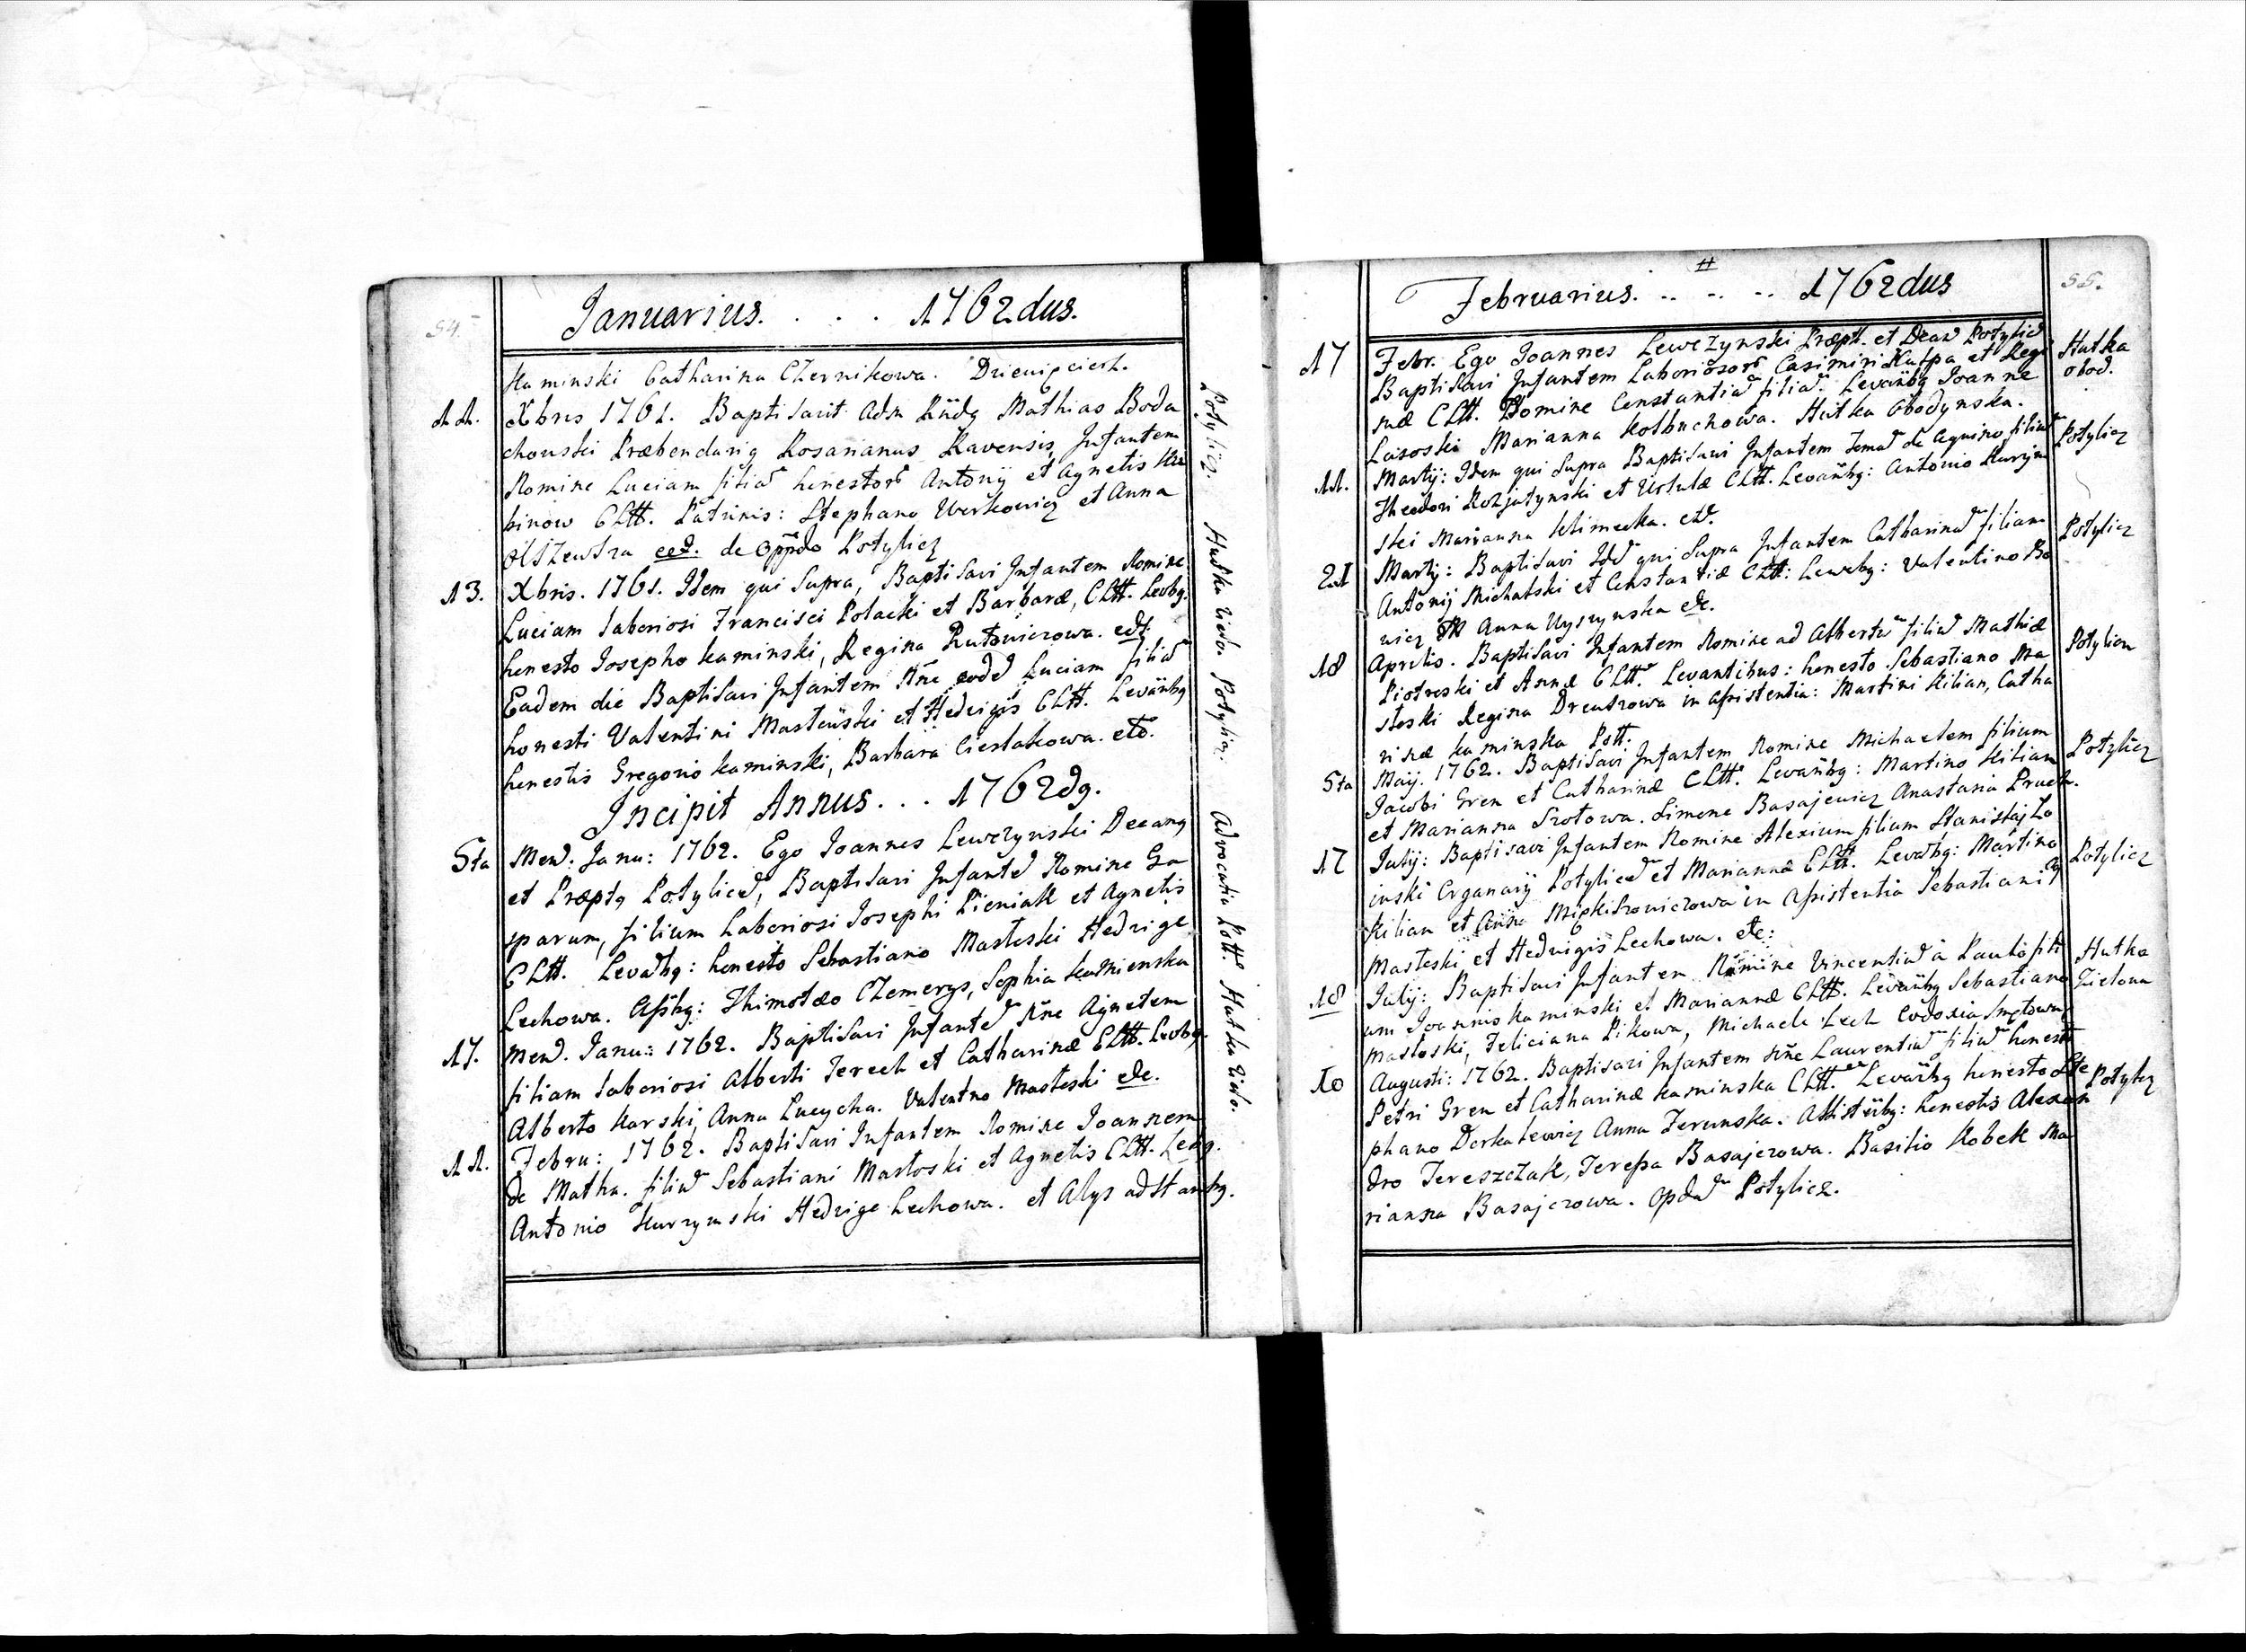 54.
Januarius. . . . 1762dus.
Kaminski Catharina Czernikowa. Dziewięcierz.
11. Xbris 1761. Baptisavit Adm Rńdg Mathias Boda
chouski Præbendarig Rosarianus Ravensis, Infantem
Nomine Luciam filiã honestorũ Antonij et Agnetis
binow CLtt. Patrinis: Stephano Werkowicz et Anna
Olszewska ccd. de Oppdo Potylicz
13. Xbris. 1761. Idem qui supra, Baptisavi Infantem Nomine
Luciam laboriosi Francisci Polacki et Barbaræ, CLtt. Levbg.
honesto Josepho Kaminski, Regina Rutowiczowa. edt.
Eadem die Baptisavi Infantem Nñe eodẽ Luciam filiã
honesti Valentini Masteüski et Hedvigis CLtt. Levãnbg
honestis Gregorio Kaminski, Barbara Cieslakowa. etc.
Incipit Annus . . . 1762dg.
5ta Mens. Janu: 1762. Ego Joannes Lewczynski Decang
et Præptg Potylicẽ, Baptisavi Infantẽ Nomine Ga
sparum, filium Laboriosi Josephi Pieniak et Agnetis
CLtt. Levãtbg: honesto Sebastiano Masteski Hedvige
Lechowa. Aßbg: Thimotæo Czemerys, Sophia Kamienska
17. Mens. Janu: 1762. Baptisavi Infantẽ Nñe Agnetem
filiam laboriosi Alberti Terech et Catharinæ CLtt. Levbg.
Alberto Karski, Anna Lucycha. Valentno Masteski etc.
11. Febru: 1762. Baptisavi Infantem Nomine Joannem
de Matha. filiũ Sebastiani Mastoski et Agnetis CLtt. Levbg.
Antonio Kurzymski Hedvige Lechowa. et Alys adstantbg.
Potylicz. Hutka Zielo: Potylicz. Advocatia Pott. Hutka Zielo.
55.
Februarius. .. .. .. 1762dus
17 Febr. Ego Joannes Lewczynski Præpt. et Decaũ Potylicẽ
Baptisavi Infantem Laboriosorũ Casimiri Kulpa et Regi
næ CLtt. Nomine Constantiã filiã. Levãnbg Joanne
Lasoski Marianna Kolbuchowa. Hutka Obodynska.
Hutka
obod.
11. Martij: Idem qui supra Baptisavi Infantem Tomã de Aquino filiũ
Theodori Rozjatynski et Ursulæ CLtt. Levãnbg: Antonio Kurzym
ski Marianna Klimecka. etc.
Potylicz
21 Martij: Baptisavi Idẽ qui supra Infantem Catharinã filiam
Antonij Michalski et Constantiæ CLtt: Levebg: Valentino Bo
wicz Anna Uyszynska etc.
Potylicz
18 Aprilis. Baptisavi Infantem Nomine Adalbertũ filiũ Mathiæ
Piotroski et Annæ CLtt. Levantibus: honesto Sebastiano Ma
stoski Regina Drewsowa in aßistentia: Martini Kilian, Catha
rinæ Kaminska Pott.
Potylicz
5ta Maij. 1762. Baptisavi Infantem Nomine Michaelem filium
Jacobi Gren et Catharinæ CLtt. Levãnbg: Martino Kilian
et Marianna Szotowa. Simone Basajewicz Anastasia Pruch.
Potylicz
17 Julij: Baptisavi Infantem Nomine Alexium filium Stanislaj Lo
inski Organarij Potylicẽ et Mariannæ CLtt. Levãtbg: Martino
Kilian et Anna Miękiszowiczowa in aßistentia Sebastiani
Masteski et Hedvigis Lechowa. etc:
Potylicz
18 Julij: Baptisavi Infantem Nomine Vincentiũ à Paulo fili
um Joannis Kaminski et Mariannæ CLtt. Levãnbg Sebastiano
Mastoski, Feliciana Pikowa, Michaele Lech Eudoxia Smętowa
Hutka
Zielona
10 Augusti: 1762. Baptisavi Infantem Nñe Laurentiũ filiũ honesti
Petri Gren et Catharinæ Kaminska CLtt. Levãnbg honesto Ste
phano Derkalewicz Anna Terunska. Assistẽbg: honestis Alexan
dro Tereszczak, Tereßa Basajczowa. Basilio Kobek Ma
rianna Basajczowa. Opdũ Potylicz.
Potylicz